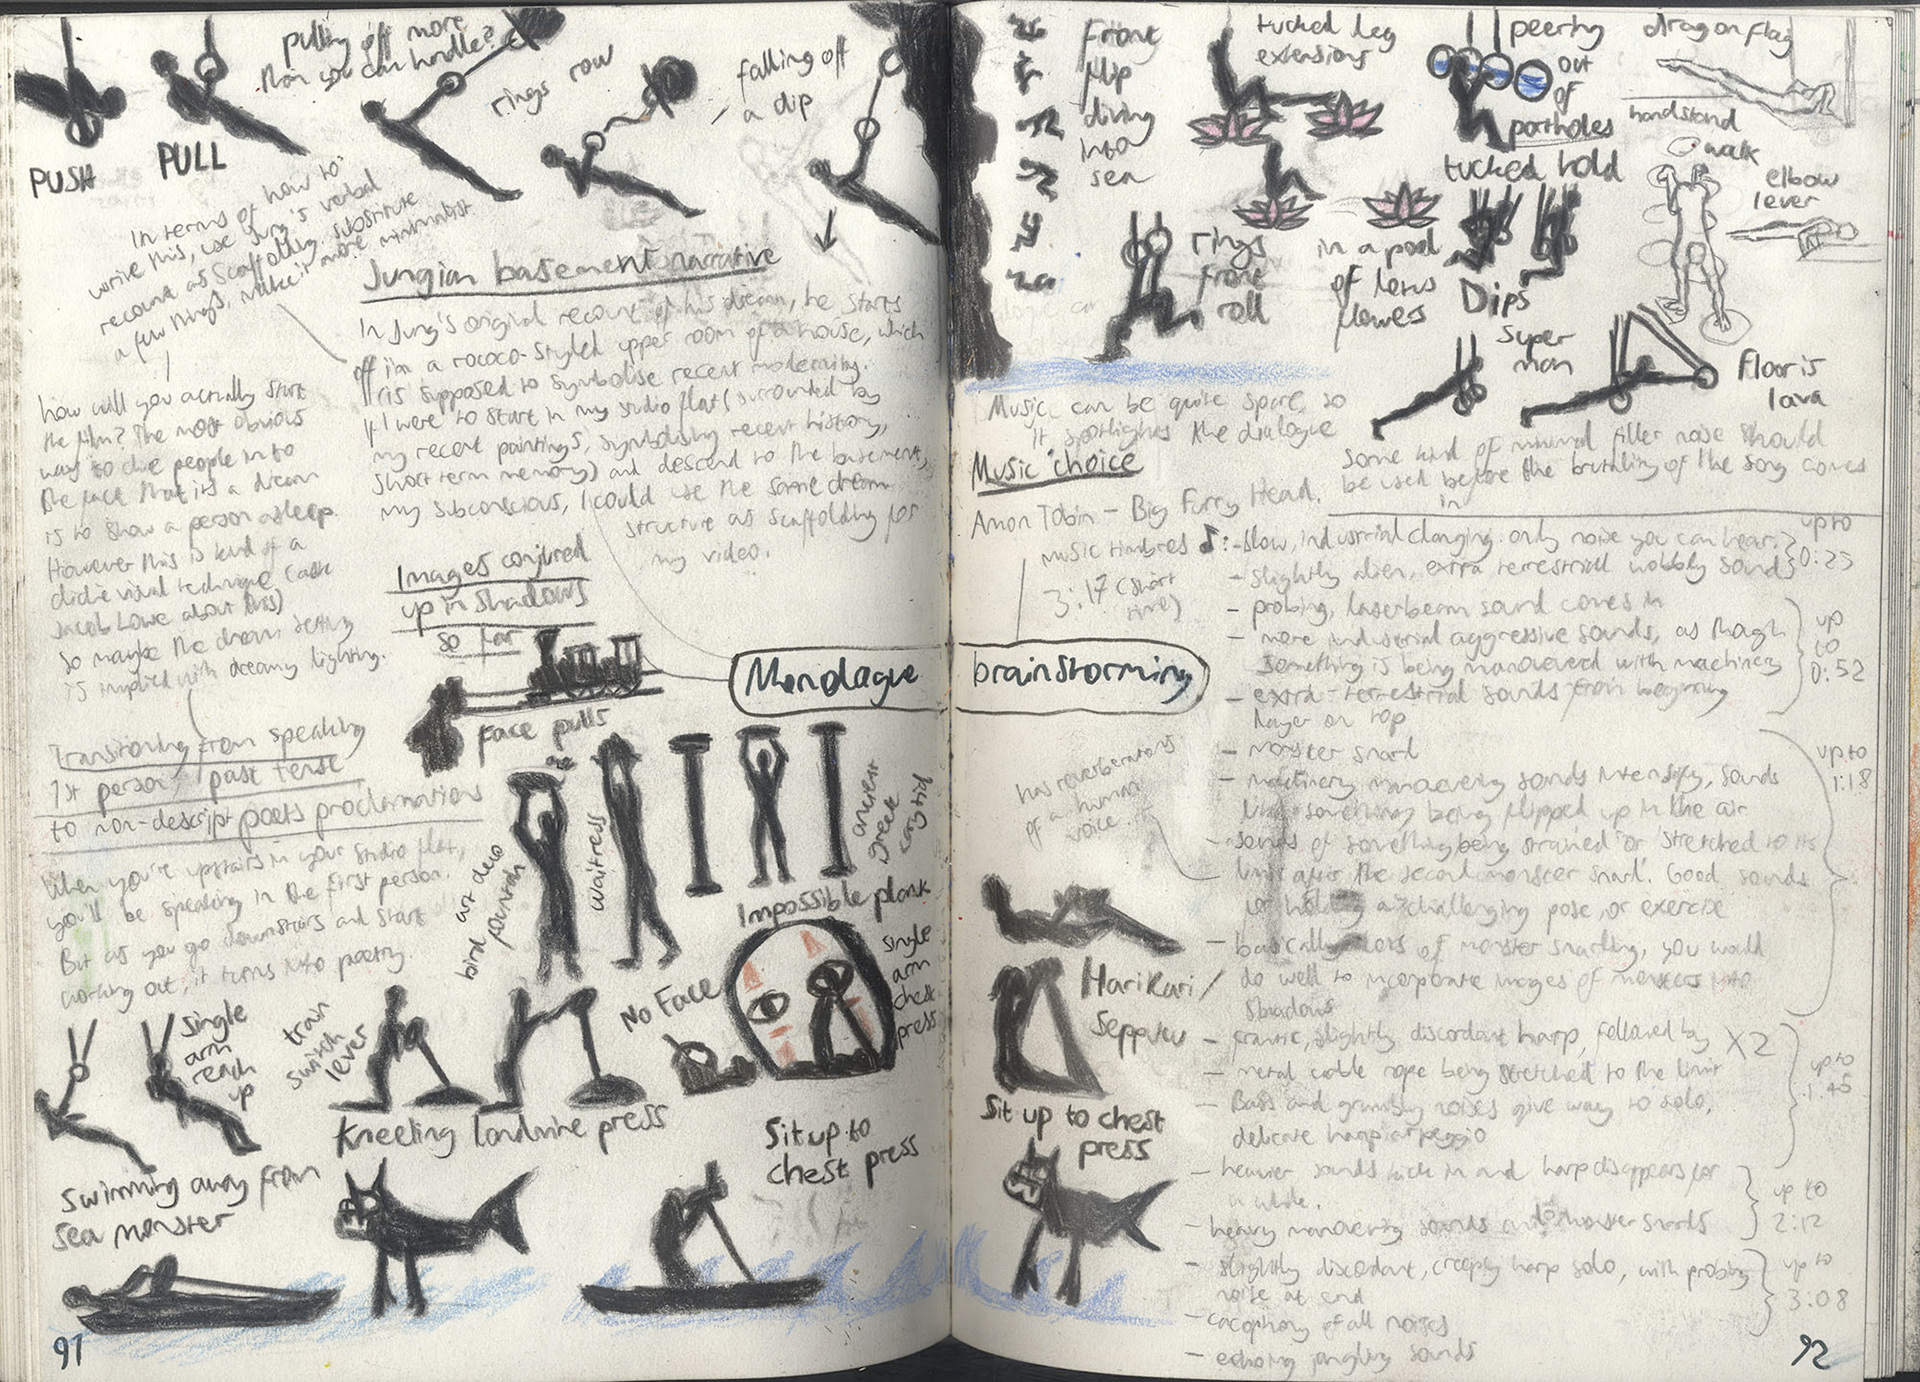 pulling off more
than you can handle?
rings row
falling off
a dip
PUSH
PULL
In terms of how to
write this, use Jung's verbal
recount as scaffolding, substitute
a few things, make it more minimalist
Jungian basement narrative
In Jung's original recount of his dream, he starts
off in a rococo-styled upper room of a house, which
is supposed to symbolise recent modernity.
If I were to start in my studio flat (surrounded by
my recent paintings, symbolising recent history,
short term memory) and descend to the basement,
my subconscious, I could use the same dream
structure as scaffolding for
my video.
how will you actually start
the film? The most obvious
way to clue people in to
the fact that its a dream
is to show a person asleep.
However this is kind of a
cliché visual technique (ask
Jacob Lowe about this)
So maybe the dream setting
is implied with dreamy lighting.
Images conjured
up in shadows
so far
face pulls
Transitioning from speaking
1st person, past tense
to non-descript poets proclamations
When you're upstairs in your studio flat,
you'll be speaking in the first person.
But as you go downstairs and start
working out, it turns into poetry.
bird art deco
fountain
waitress
ancient
greek
caryatid
Impossible plank
No Face
single
arm
chest
press
single
arm
reach
up
train
switch
lever
Kneeling landmine press
Sit up to
chest press
Swimming away from
Sea monster
91
Monologue brainstorming
front
flip
diving
into
sea
tucked leg
extensions
peering
out
of
portholes
dragon flag
handstand
walk
tucked hold
elbow
lever
rings
front
roll
in a pool
of lotus
flowers
Dips
Super
man
Floor is
lava
Music can be quite sparse, so
it spotlights the dialogue
Music choice
Some kind of minimal filler noise should
be used before the brutality of the song comes
in
Amon Tobin - Big Furry Head.
music timbres
3:17 (short
time)
- slow, industrial clanging. only noise you can hear.
- slightly alien, extra terrestrial wobbly sound
up to
0:25
- probing, laserbeam sound comes in
- more industrial aggressive sounds, as though
something is being maneuvered with machinery
- extra-terrestrial sounds from beginning
layer on top
up
to
0:52
- monster snarl
- machinery manoevering sounds intensify, sounds
like something being flipped up in the air
- sounds of something being strained or stretched to its
limit after the second monster snarl. Good sounds
for holding a challenging pose, or exercise
has reverberations
of a human
voice.
- basically lots of monster snarling, you would
do well to incorporate images of monsters into
shadows
up to
1:18
- frantic, slightly discordant harp, followed by X2
- metal cable rope being stretched to the limit
- Bass and grumbly noises give way to solo,
delicate harp arpeggio
up to
1:45
- heavier sounds kick in and harp disappears for
a while.
- heavy manoevering sounds and monster snarls
up to
2:12
- slightly discordant, creepy harp solo, with probing
noise at end
- cacophony of all noises
- echoing jangling sounds
up to
3:08
Hari Kari/
Seppuku
Sit up to chest
press
92